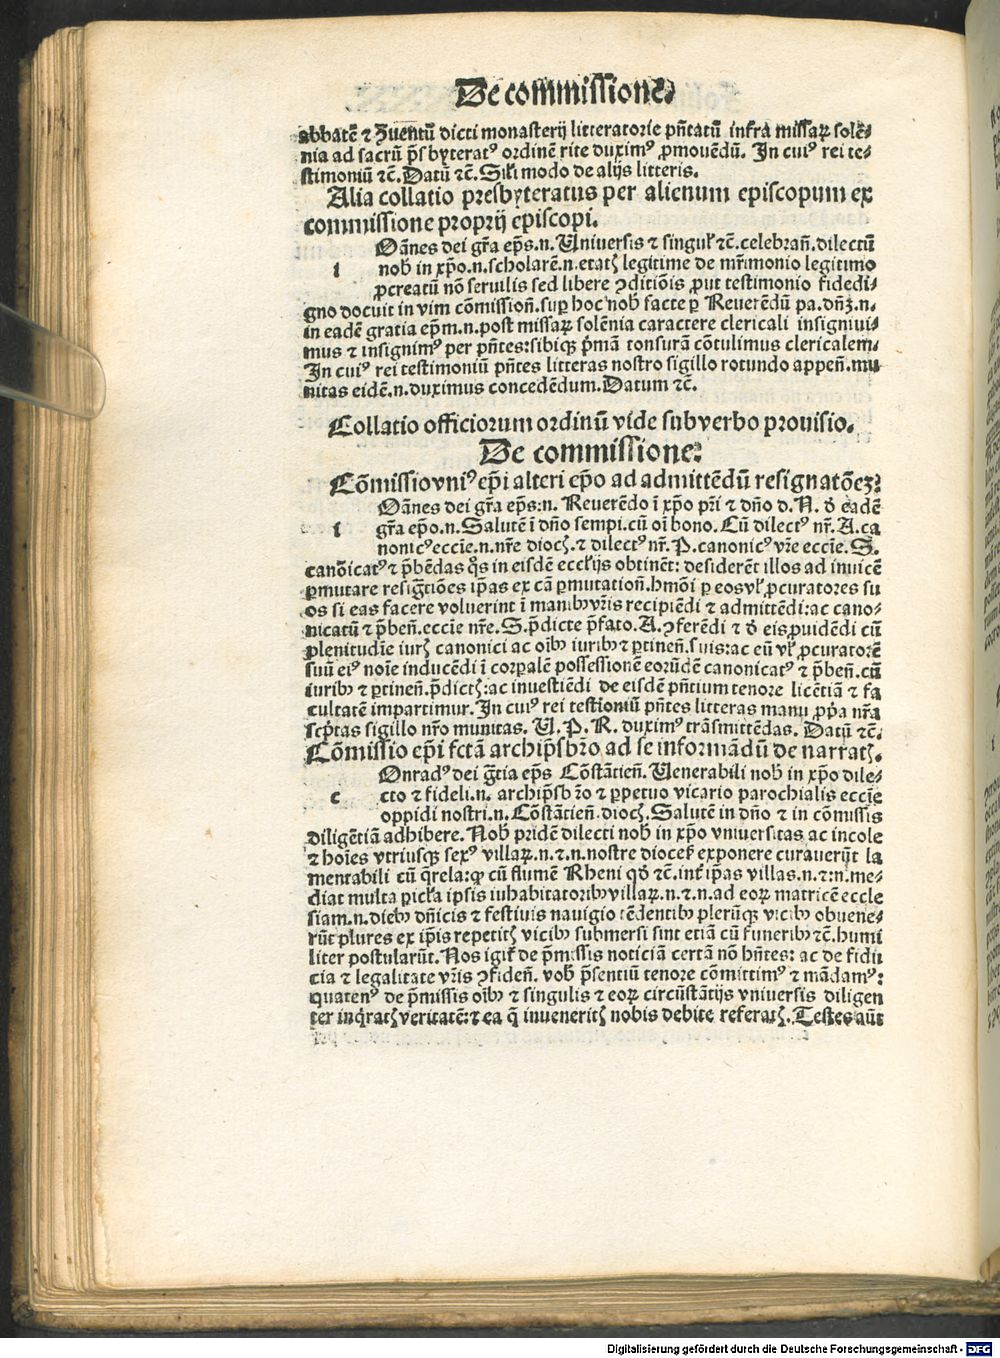 De commissione.
abbatē ⁊ ꝯuentū dicti monasterij litteratorie pn̄tatū infra missaꝝ solē⸗
nia ad sacrū p̄sbyteratꝰ ordinē rite duximꝰ ꝓmouēdū. In cuiꝰ rei te⸗
stimoniū ⁊c̄. Datū ⁊c̄. Sil̛i modo de alijs litteris.
Alia collatio presbyteratus per alienum episcopum ex
commissione proprij episcopi.
Oānes dei gr̄a ep̄s.n. Uniuersis ⁊ singul̛ ⁊c̄. celebran̄. dilectū
i nob̛ in xp̄o.n. scholarē.n. etatꝭ legitime de mr̄imonio legitimo
ꝓcreatū nō seruilis sed libere ꝯditiōis ꝓut testimonio fidedi⸗
gno docuit in vim cōmission̄. suꝑ hoc nob̛ facte ꝑ Reuerēdū pa. dn̄ꝫ.n.
in eadē gratia ep̄m.n. post missaꝝ solēnia caractere clericali insigniui⸗
mus ⁊ insignimꝰ per pn̄tes: sibiqꝫ p̄mā tonsurā cōtulimus clericalem.
In cuiꝰ rei testimoniū pn̄tes litteras nostro sigillo rotundo appen̄. mu
nitas eidē.n. duximus concedēdum. Datum ⁊c̄.
Collatio officiorum ordinū vide sub verbo prouisio.
De commissione.
Cōmissio vniꝰ ep̄i alteri ep̄o ad admittēdū resignatōeꝫ.
Oānes dei gr̄a ep̄s.n. Reuerēdo ī xp̄o pr̄i ⁊ dn̄o d. N. ꝺ̄ eadē
i gr̄a ep̄o.n. Salutē ī dn̄o sempi. cū oī bono. Cū dilectꝰ nr̄. A. ca
nonicꝰ eccīe.n. nr̄e diocꝭ. ⁊ dilectꝰ nr̄. P. canonicꝰ vr̄e eccīe. S.
canōicatꝰ ⁊ p̄bēdas qͦs in eisdē eccl̛ijs obtinēt: desiderēt illos ad inuicē
ꝑmutare resigt̄iōes ip̄as ex cā ꝑmutation̄. hmōi ꝑ eos vl̛ ꝓcuratores su
os si eas facere voluerint ī manibꝰ vr̄is recipiēdi ⁊ admittēdi: ac cano⸗
nicatū ⁊ p̄ben̄. eccīe nr̄e. S. p̄dicte p̄fato. A. ꝯferēdi ⁊ ꝺ̄ eis ꝓuidēdi cū
plenitudīe iurꝭ canonici ac oībꝰ iuribꝰ ⁊ ꝑtinen̄. suis: ac eū vl̛ ꝓcuratorē
suū eiꝰ noīe inducēdi ī corꝑalē possessionē eorūdē canonicatꝰ ⁊ p̄ben̄. cū
iuribꝰ ⁊ ꝑtinen̄. p̄dictꝭ: ac inuestiēdi de eisdē pn̄tium tenore licētiā ⁊ fa
cultatē impartimur. In cuiꝰ rei testioniū pn̄tes litteras manu ꝓp̄a nr̄a
scp̄tas sigillo nr̄o munitas. U. P. R. duximꝰ trāsmittēdas. Datū ⁊c̄.
Cōmissio ep̄i fctā archip̄sbr̄o ad se informādū de narratꝭ.
Onradꝰ dei gr̄tia ep̄s Cōstātien̄. Uenerabili nob̛ in xp̄o dile⸗
c cto ⁊ fideli.n. archip̄sb̄r̄o ⁊ ꝑpetuo vicario parochialis eccīe
oppidi nostri.n. Cōstātien̄. diocꝭ. Salutē in dn̄o ⁊ in cōmissis
diligētiā adhibere. Nob̛ pridē dilecti nob̛ in xp̄o vniuersitas ac incole
⁊ hoīes vtriusqꝫ sexꝰ villaꝝ.n. ⁊.n. nostre diocel̛ exponere curauerūt la
mentabili cū q̄rela: qꝙ cū flumē Rheni qꝺ̄ ⁊c̄. int̛ ip̄as villas.n. ⁊:n. me⸗
diat multa pic̛la ipsis inhabitatoribꝰ villaꝝ.n. ⁊.n. ad eoꝝ matricē eccle
siam.n. diebꝰ dn̄icis ⁊ festiuis nauigio tēdentibꝰ plerūqꝫ vicibꝰ obuene⸗
rūt plures ex ip̄is repetitꝭ vicibꝰ submersi sint etiā cū funeribꝰ ⁊c̄. humi
liter postularūt. Nos igit̛ de p̄missis noticiā certā nō hn̄tes: ac de fidu
cia ⁊ legalitate vr̄is ꝯfiden̄. vob̛ p̄sentiū tenore cōmittimꝰ ⁊ mādamꝰ:
quatenꝰ de p̄missis oībꝰ ⁊ singulis ⁊ eoꝝ circūstātijs vniuersis diligen
ter inq̄ratꝭ veritatē: ⁊ ea q̄ inueneritꝭ nobis debite referatꝭ. Testes aūt
Digitalisierung gefördert durch die Deutsche Forschungsgemeinschaft - DFG